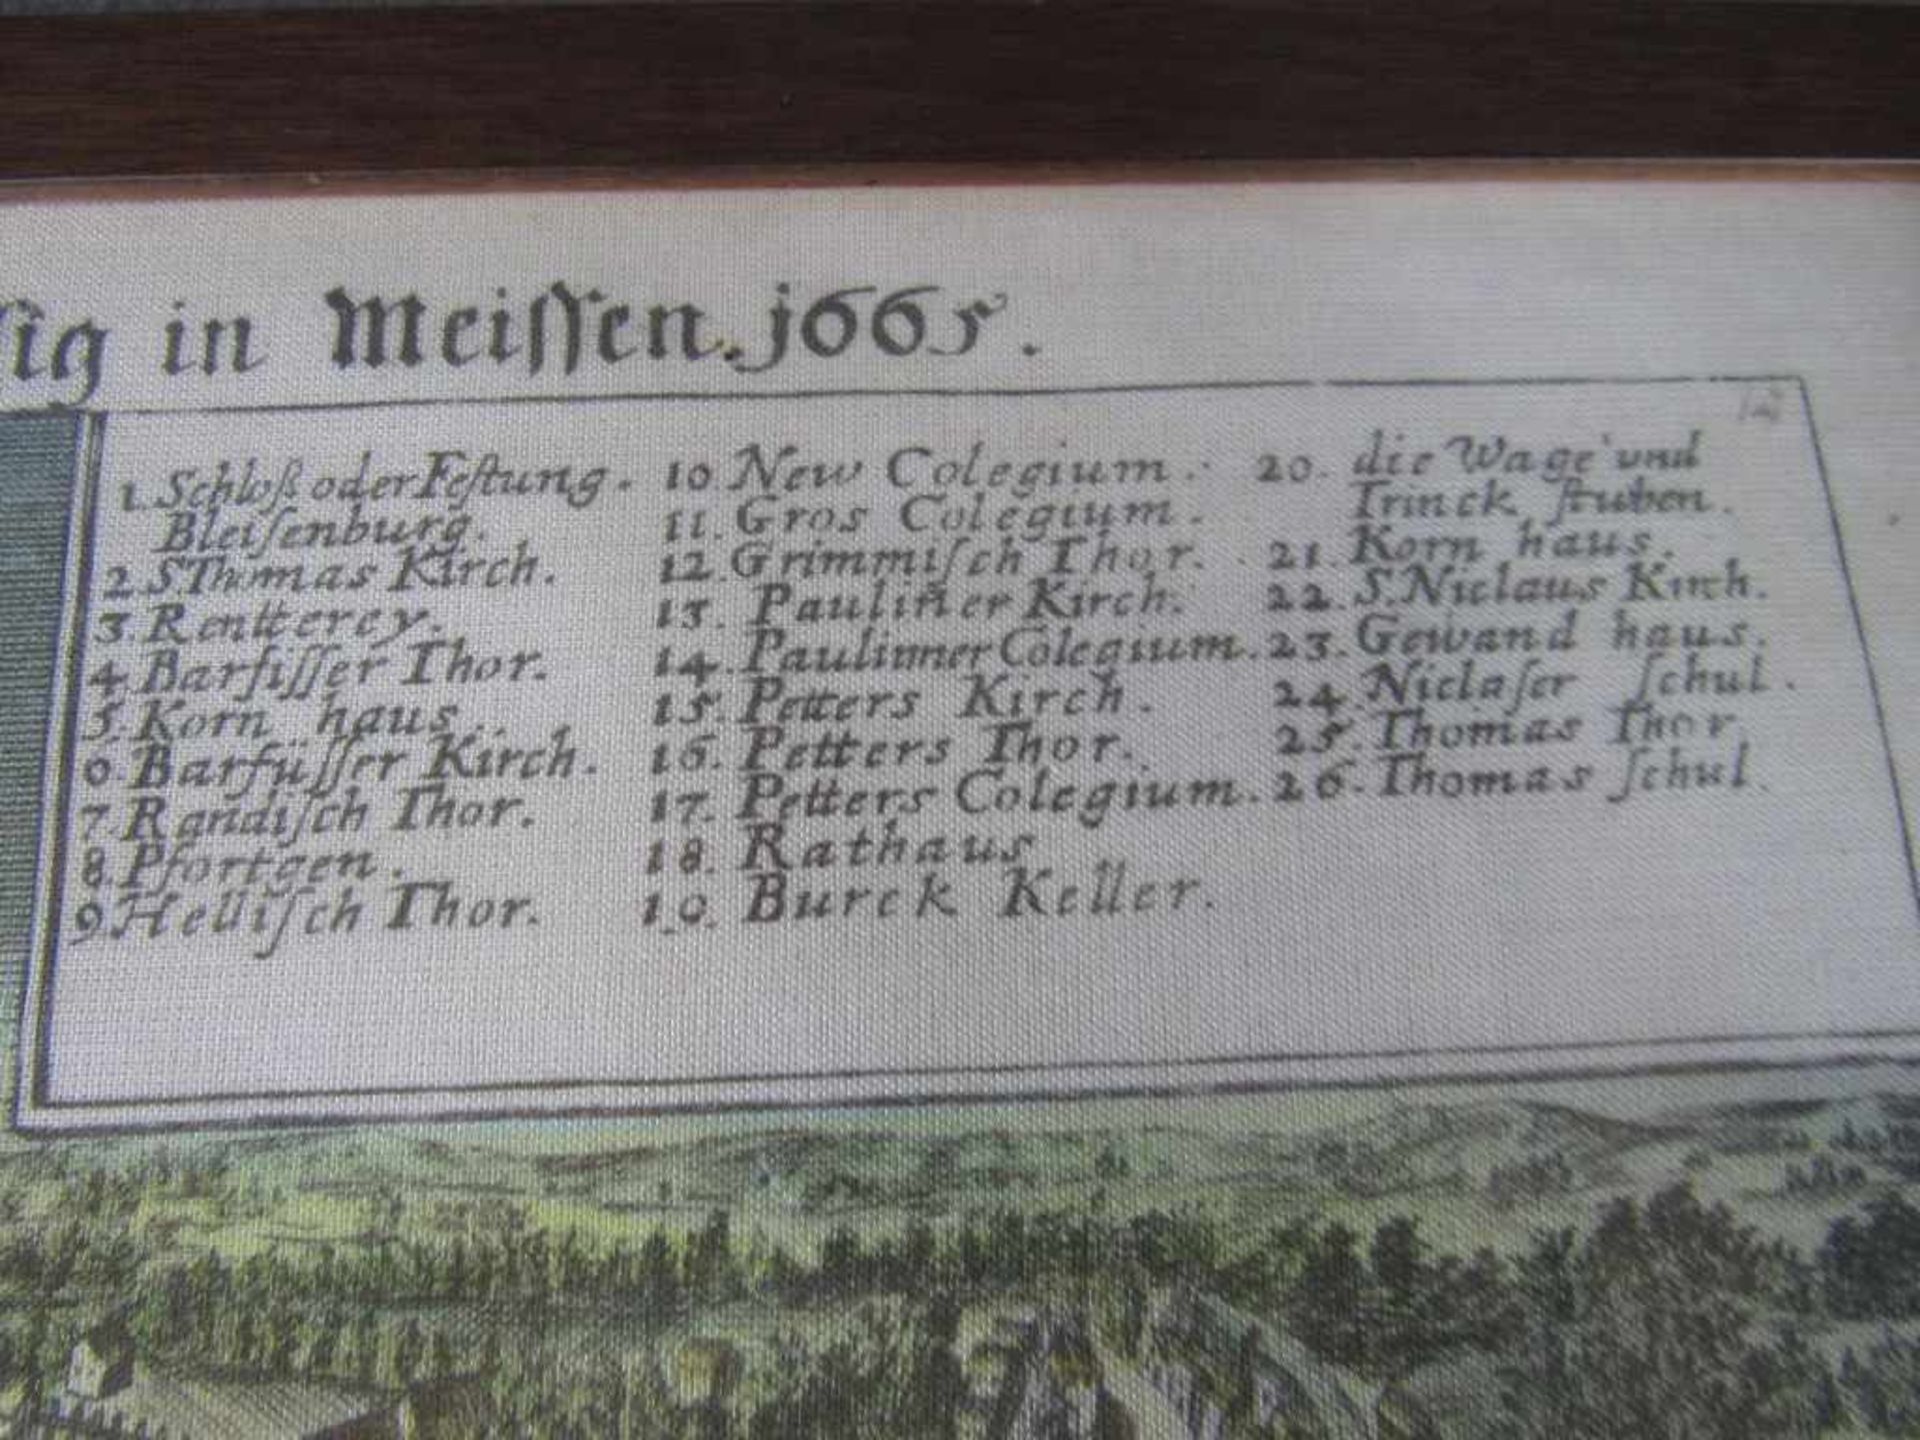 sig in Meissen. j665.
1. Schloß oder Festung.
Bleisenburg.
2. S. Thomas Kirch.
3. Rentterey.
4. Barfisser Thor.
5. Korn haus.
6. Barfüsser Kirch.
7. Randisch Thor.
8. Pfortgen.
9. Hellisch Thor.
10. New Colegium.
11. Gros Colegium.
12. Grimmisch Thor.
13. Pauliner Kirch.
14. Paulinner Colegium.
15. Petters Kirch.
16. Petters Thor.
17. Petters Colegium.
18. Rathaus
19. Burck Keller.
20. die Wage und
Trinck stuben.
21. Korn haus.
22. S. Niclaus Kirch.
23. Gewand haus.
24. Niclaser schul.
25. Thomas Thor
26. Thomas schul.